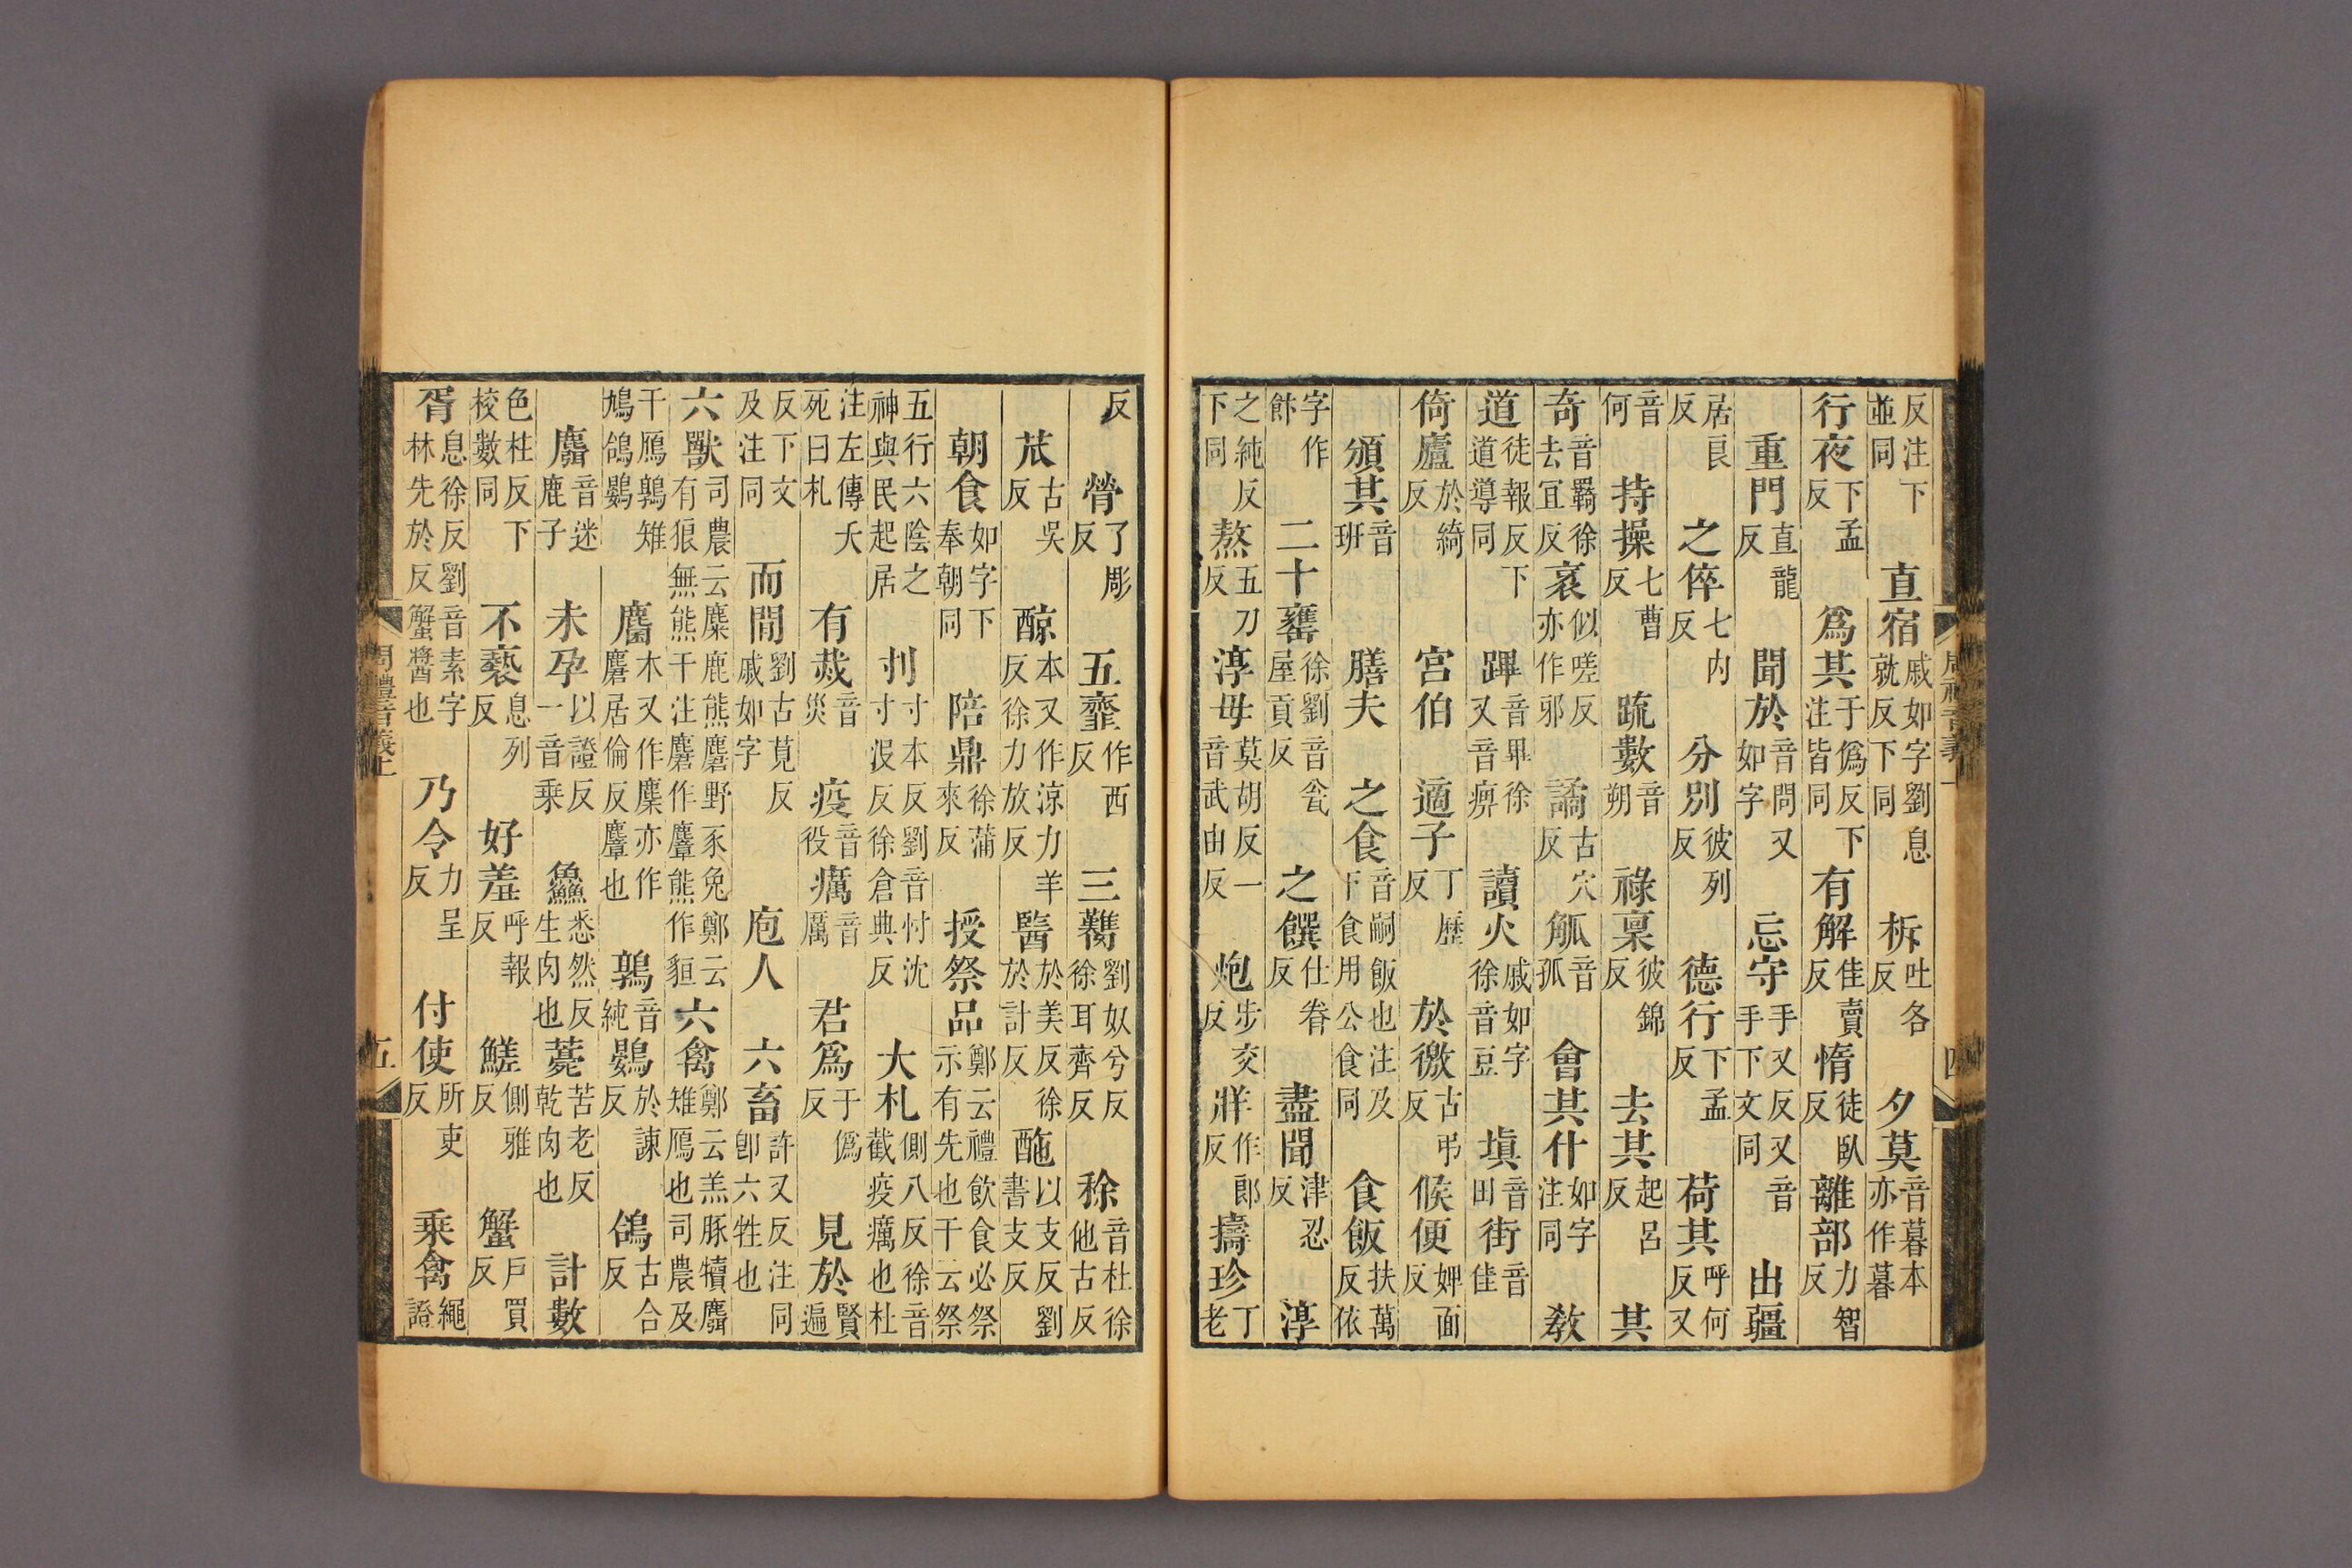 反注下並同 直宿戚如字劉息就反下同 柝吐各反 夕莫音暮本亦作暮
行夜下孟反 爲其于僞反下注皆同 有解佳賣反 惰徒臥反 離部力智反
重門直龍反 聞於音問又如字 忘守手又反又音手下文同 出疆
居良反 之倅七内反 分別彼列反 德行下孟反 荷其呼何反又
音何 持操七曹反 疏數音朔 祿稟彼錦反 去其起呂反 其
奇音羈徐去宜反 衺似嗟反亦作邪 譎古穴反 觚音孤 會其什如字注同 敎
道徒報反下道導同 蹕音畢徐又音痹 讀火戚如字徐音豆 塡音田 街音佳
倚廬於綺反 宮伯 適子丁歷反 於徼古弔反 候便婢面反
頒其音班 膳夫 之食音嗣飯也注及下食用公食同 食飯扶萬反依
字作飰 二十罋徐劉音瓮屋貢反 之饌仕眷反 盡聞津忍反 淳
之純反下同 熬五刀反 淳毋莫胡反一音武由反 炮步交反 牂作郎反 擣珍丁老
周禮音義上 四
反 膋了彫反 五齏作西反 三臡劉奴兮反徐耳齊反 稌音杜徐他古反
苽古吳反 䣼本又作涼力羊反徐力放反 醫於美反徐於計反 酏以支反劉書支反
朝食如字下奉朝同 陪鼎徐蒲來反 授祭品鄭云禮飲食必祭示有先也干云祭
五行六陰之神與民起居 刌寸本反劉音忖沈寸泯反徐倉典反 大札側八反徐音截疫癘也杜
注左傳夭死曰札 有烖音災 疫音役 癘音厲 君爲于僞反 見於賢遍
反下文及注同 而閒劉古莧反戚如字 庖人 六畜許又反注同卽六牲也
六獸司農云麋鹿熊麕野豕兔鄭云有狼無熊干注麕作麞熊作貆 六禽鄭云羔豚犢麛雉鴈也司農及
干鴈鶉雉鳩鴿鷃 麕木又作麇亦作麏居倫反麞也 鶉音純 鷃於諫反 鴿古合反
麛音迷鹿子 未孕以證反一音乘 鱻悉然反生肉也 薧苦老反乾肉也 計數
色柱反下校數同 不褻息列反 好羞呼報反 鮺側雅反 蟹戶買反
胥息徐反劉音素字林先於反蟹醬也 乃令力呈反 付使所吏反 乘禽繩證
周禮音義上 五